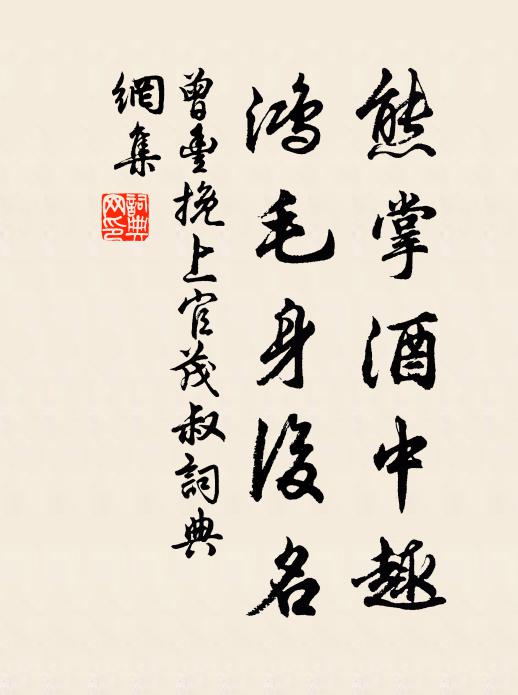 熊掌酒中趣
鸿毛身後名
曾豐挽上官茂叔詞典
網集
詞典网印